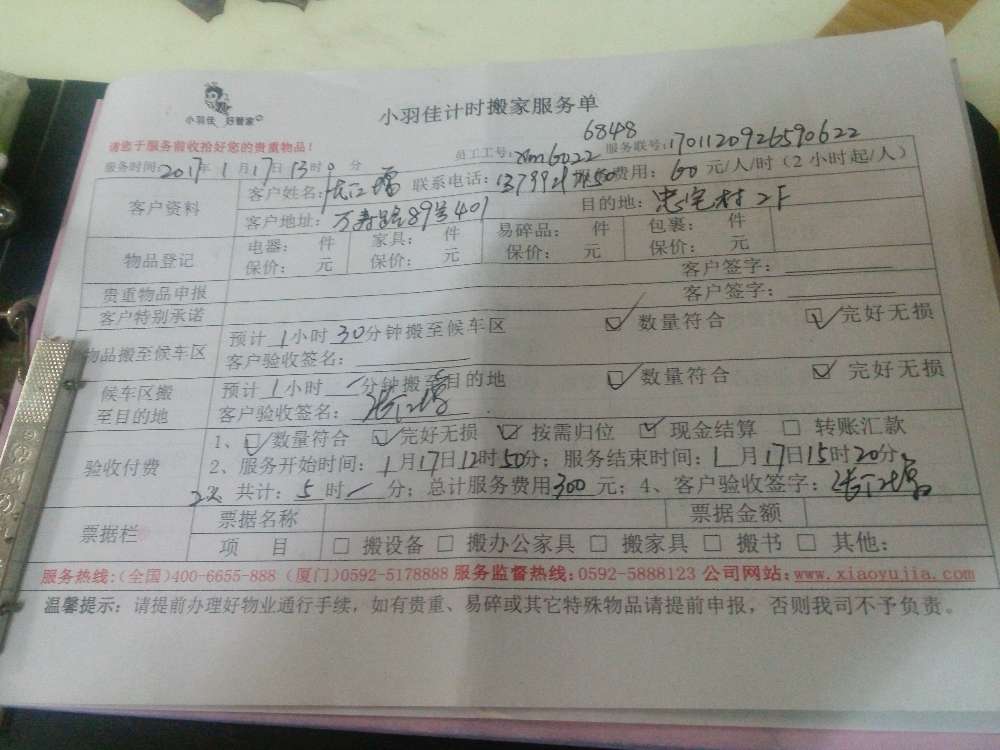 小羽佳 好管家
小羽佳计时搬家服务单
请您于服务前收拾好您的贵重物品!
6848
服务时间:2017年1月17日13时0分 员工工号:xm6022 服务联号:1701120926590622
客户资料 客户姓名: 联系电话: 费用:60元/人/时(2小时起/人)
客户地址:万寿路89号401 目的地:忠宅村2F
物品登记 电器: 件 家具: 件 易碎品: 件 包裹: 件
保价: 元 保价: 元 保价: 元 保价: 元
贵重物品申报 客户签字:
客户特别承诺 客户签字:
物品搬至候车区 预计1小时30分钟搬至候车区 数量符合 完好无损
客户验收签名:
候车区搬至目的地 预计1小时一分钟搬至目的地 数量符合 完好无损
客户验收签名:
验收付费 1、数量符合 完好无损 按需归位 现金结算 转账汇款
2、服务开始时间:1月17日12时50分;服务结束时间:1月17日15时20分;
2人 共计:5时一分;总计服务费用300元;4、客户验收签字:
票据栏 票据名称 票据金额
项 目 搬设备 搬办公家具 搬家具 搬书 其他:
服务热线:(全国)400-6655-888 (厦门)0592-5178888 服务监督热线:0592-5888123 公司网站:www.xiaoyujia.com
温馨提示:请提前办理好物业通行手续,如有贵重、易碎或其它特殊物品请提前申报,否则我司不予负责。